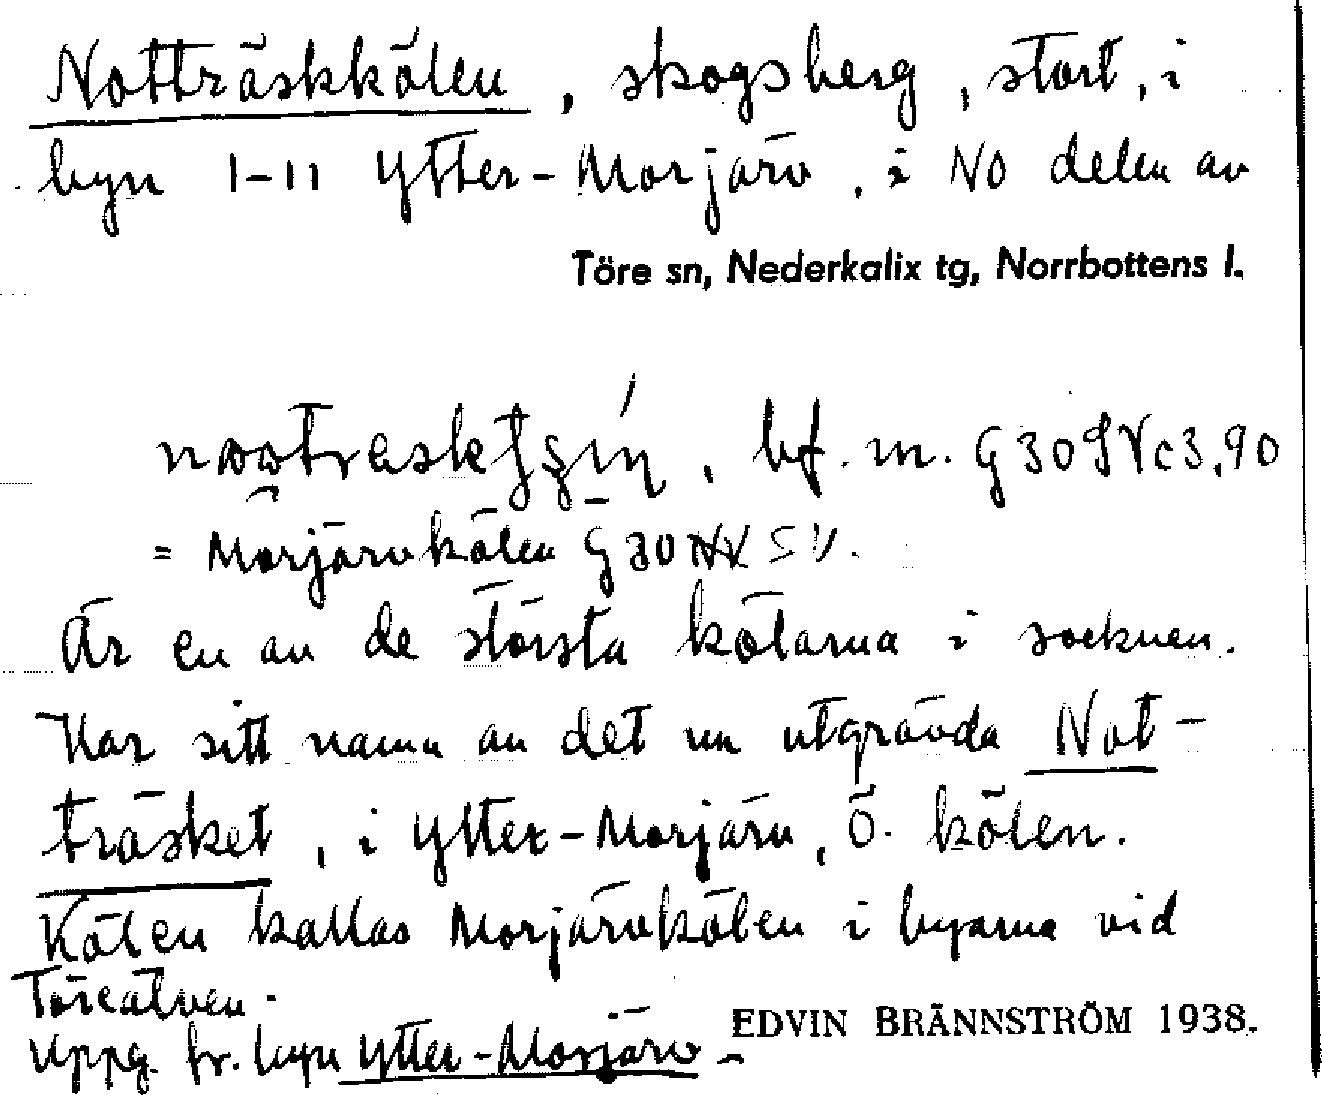 Notträskkölen, skogsberg, stort, i
byn 1-11 Ytter-Morjärv, i NO delen av
Töre sn, Nederkalix tg, Norrbottens l.
bf. m.
= Morjärvkölen
Är en av de största kölarna i socknen.
Har sitt namn av det nu utgrävda Not-
träsket, i Ytter-Morjärv, Ö. kölen.
Kölen kallas Morjärvkölen i byarna vid
Töreälven.
Uppg. fr. byn Ytter-Morjärv -
EDVIN BRÄNNSTRÖM 1938.